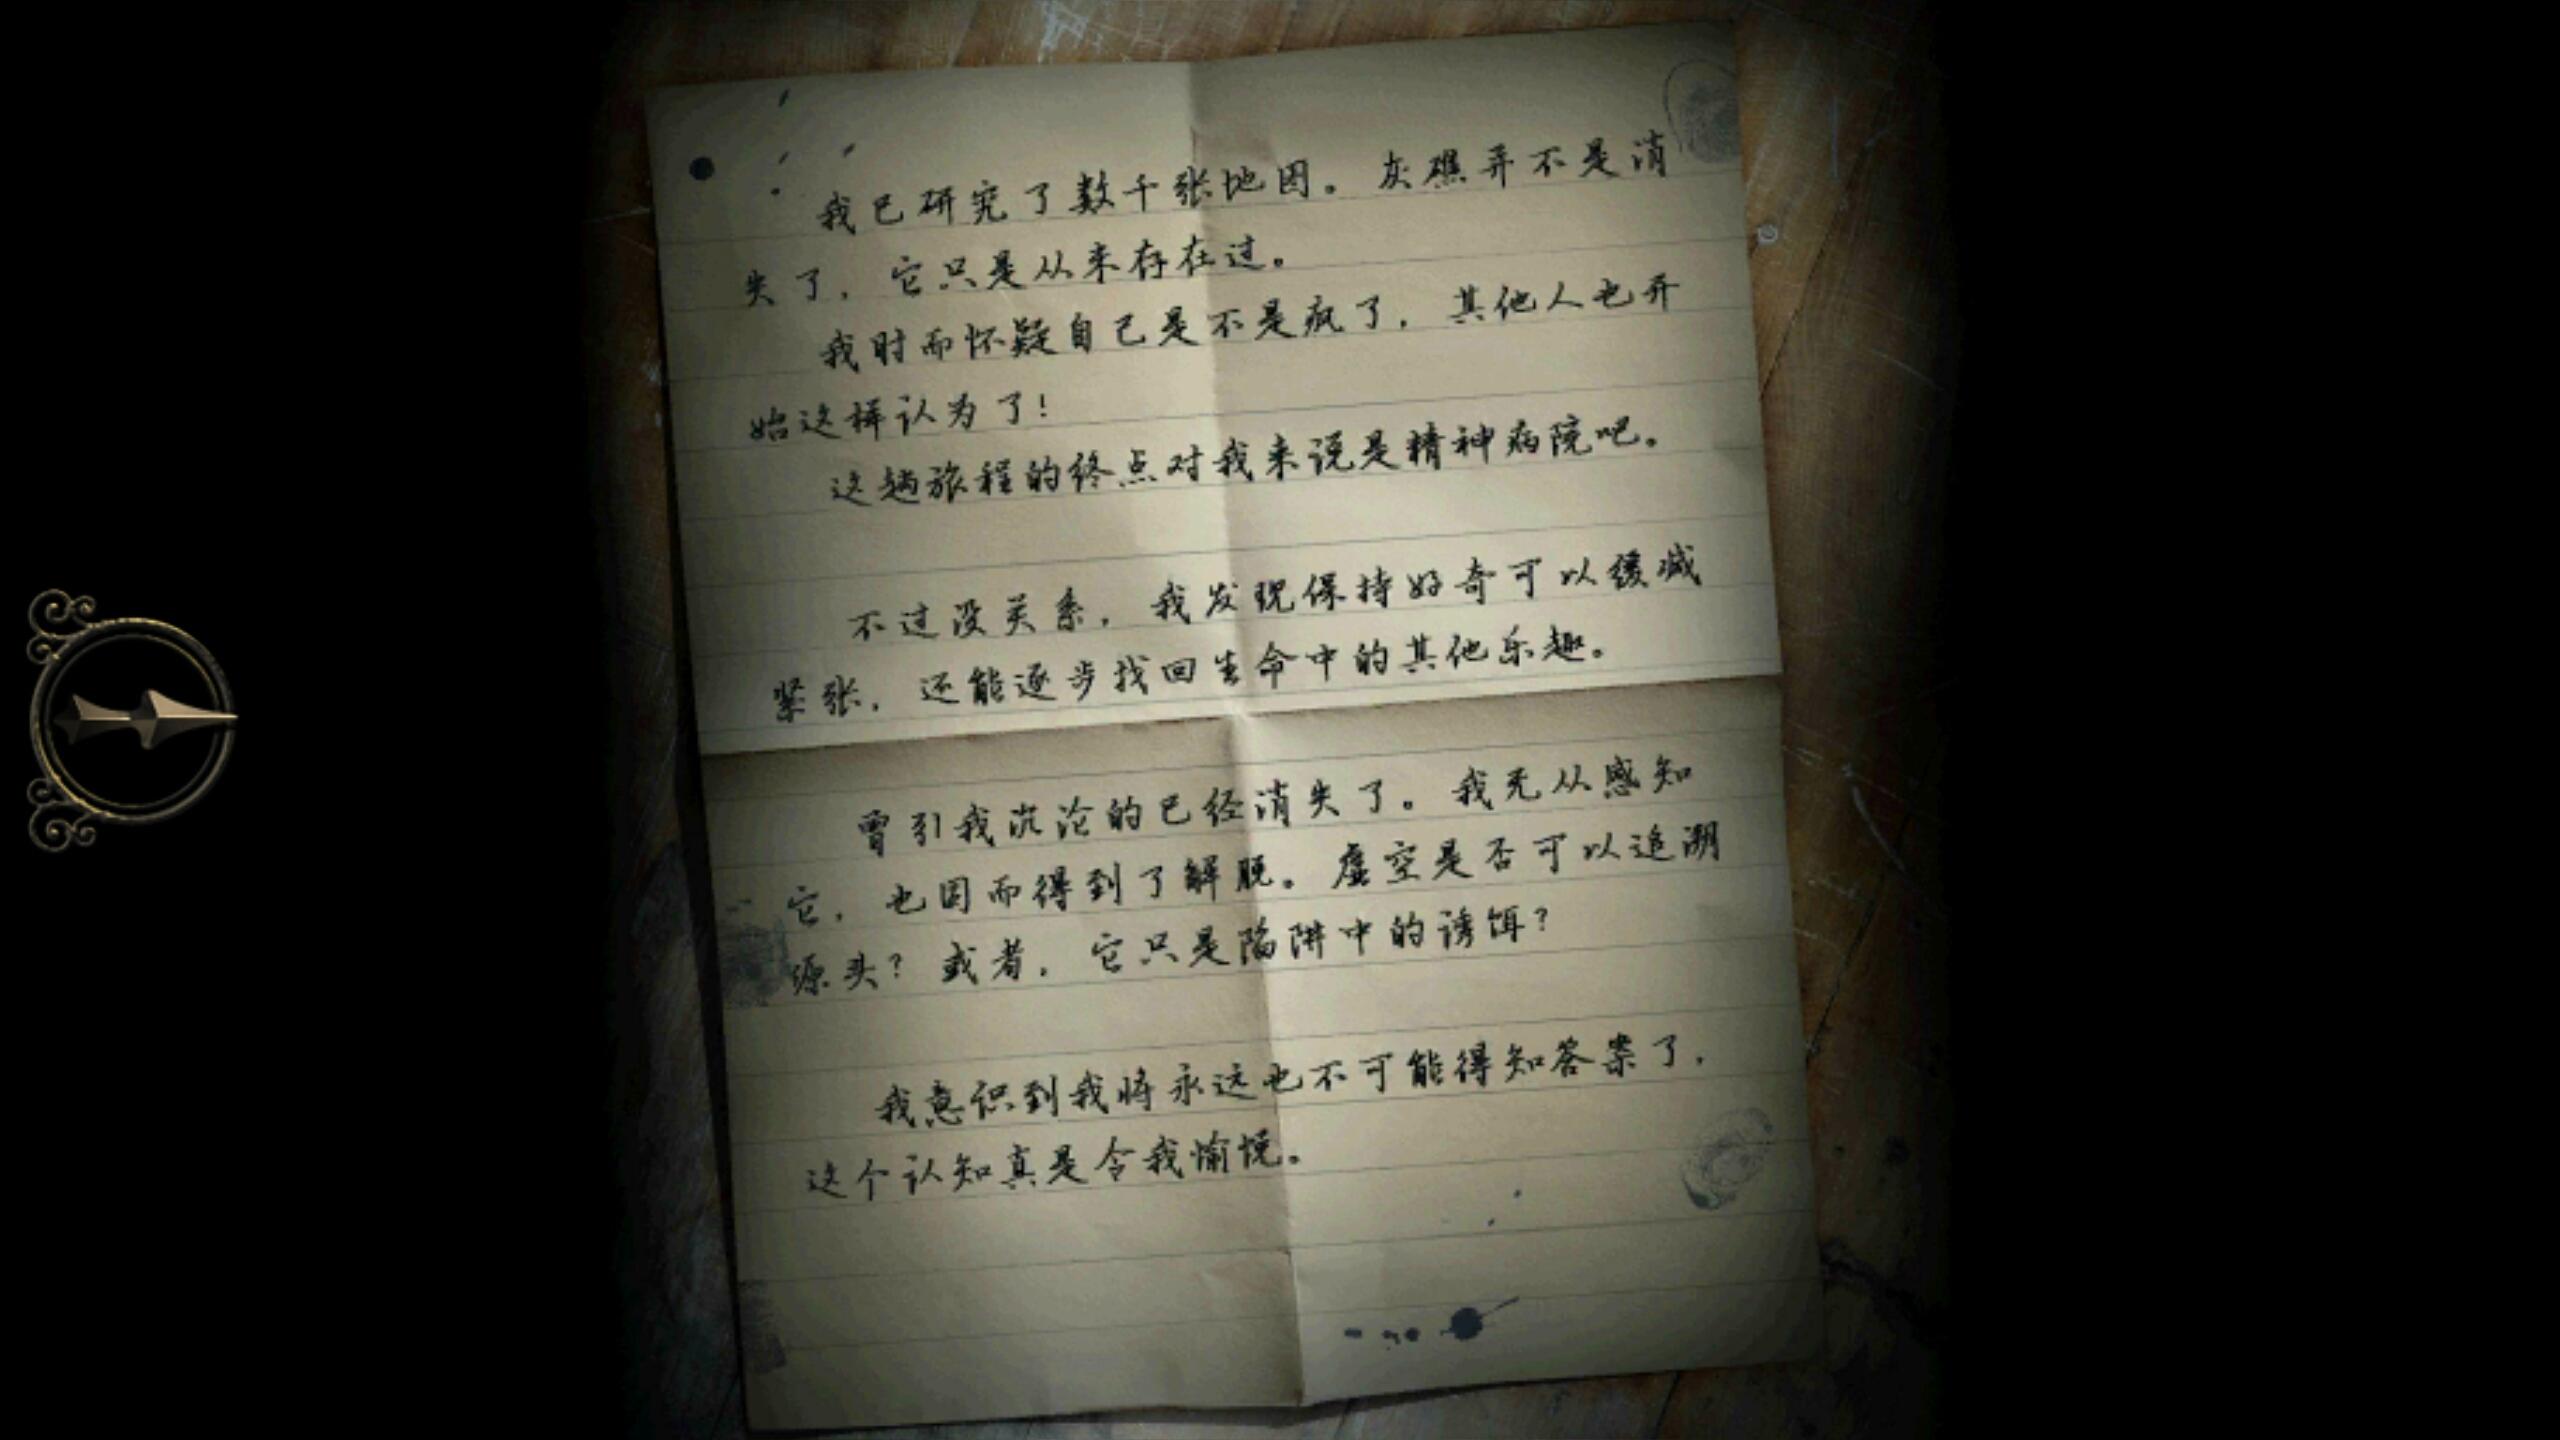 我已研究了数千张地图。灰礁并不是消
失了，它只是从来存在过。
我时而怀疑自己是不是疯了，其他人也开
始这样认为了！
这趟旅程的终点对我来说是精神病院吧。
不过没关系，我发现保持好奇可以缓减
紧张，还能逐步找回生命中的其他乐趣。
曾引我沉沦的已经消失了。我无从感知
它，也因而得到了解脱。虚空是否可以追溯
源头？或者，它只是陷阱中的诱饵？
我意识到我将永远也不可能得知答案了，
这个认知真是令我愉悦。